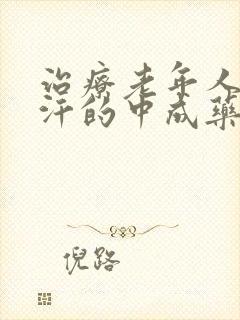 治疗老年人
汗的中成药
倪路